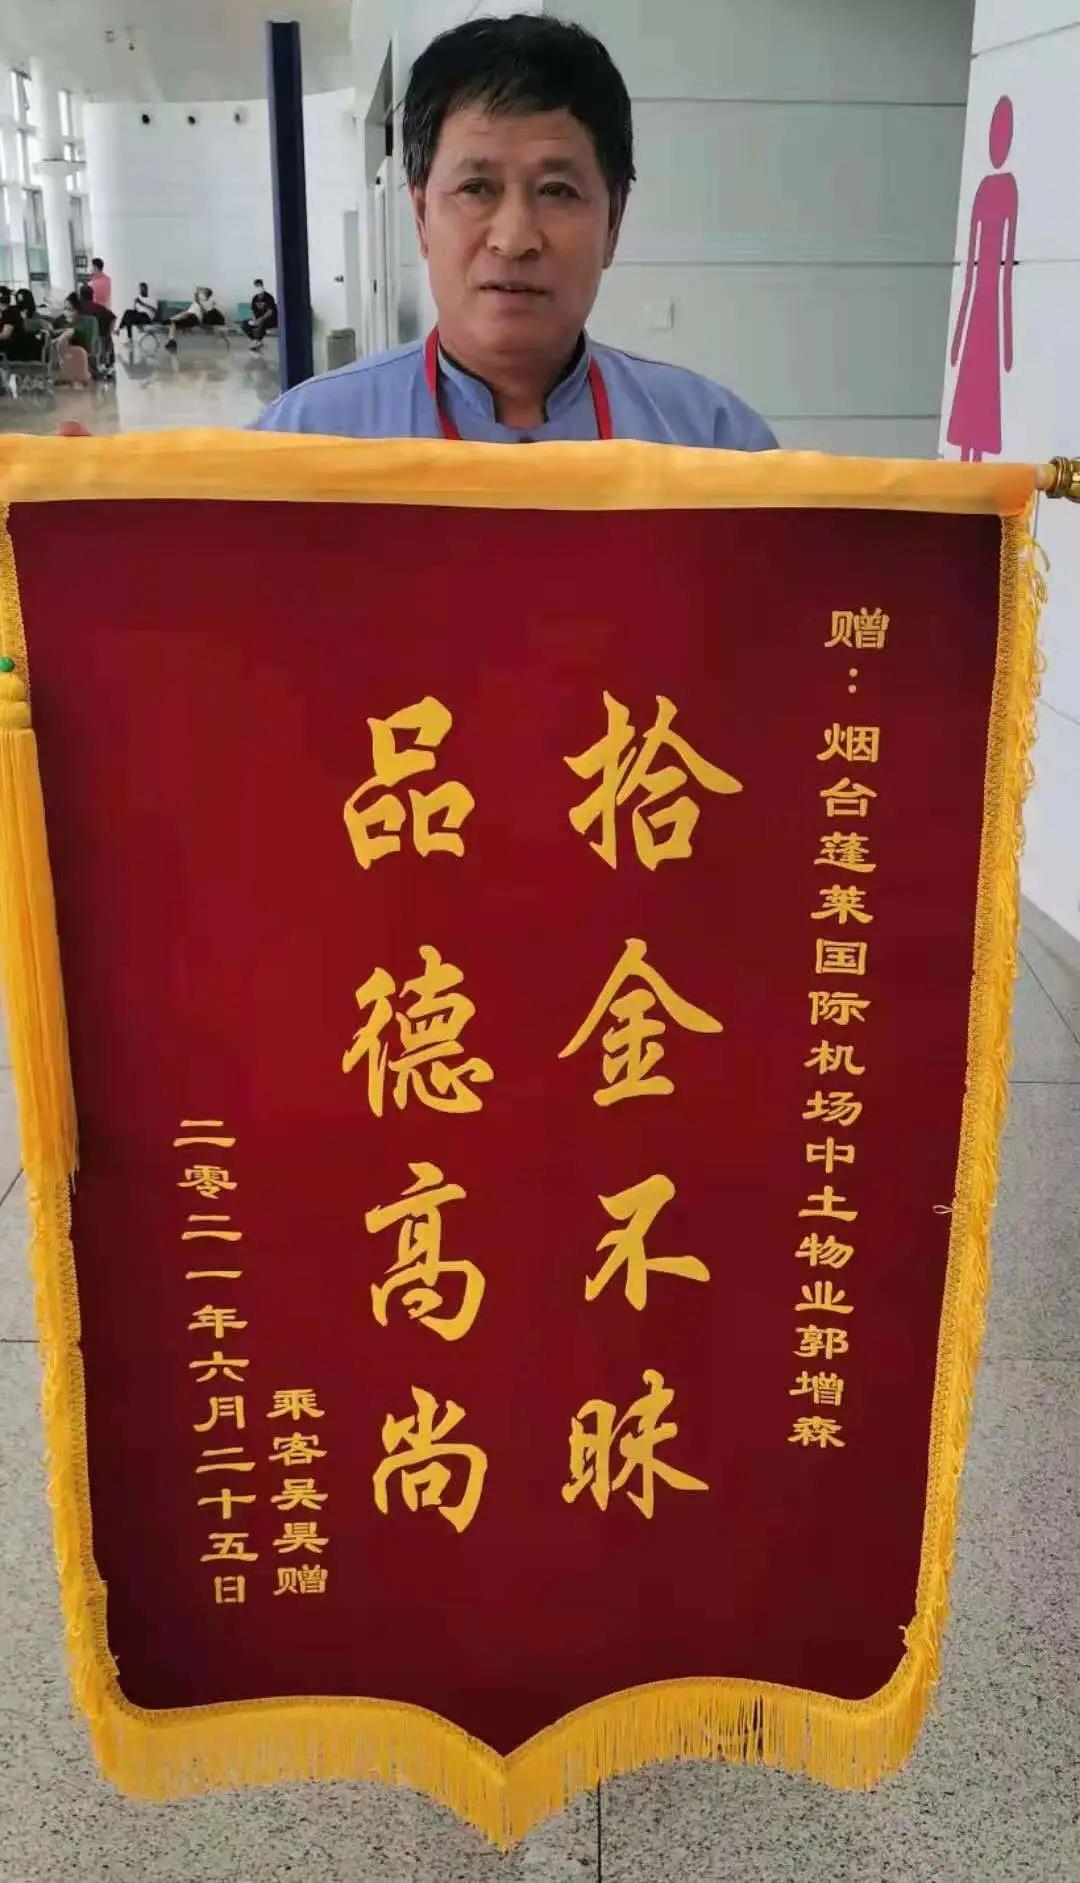 赠：烟台蓬莱国际机场中土物业郭增森
拾金不昧
品德高尚
乘客吴昊赠
二零二一年六月二十五日